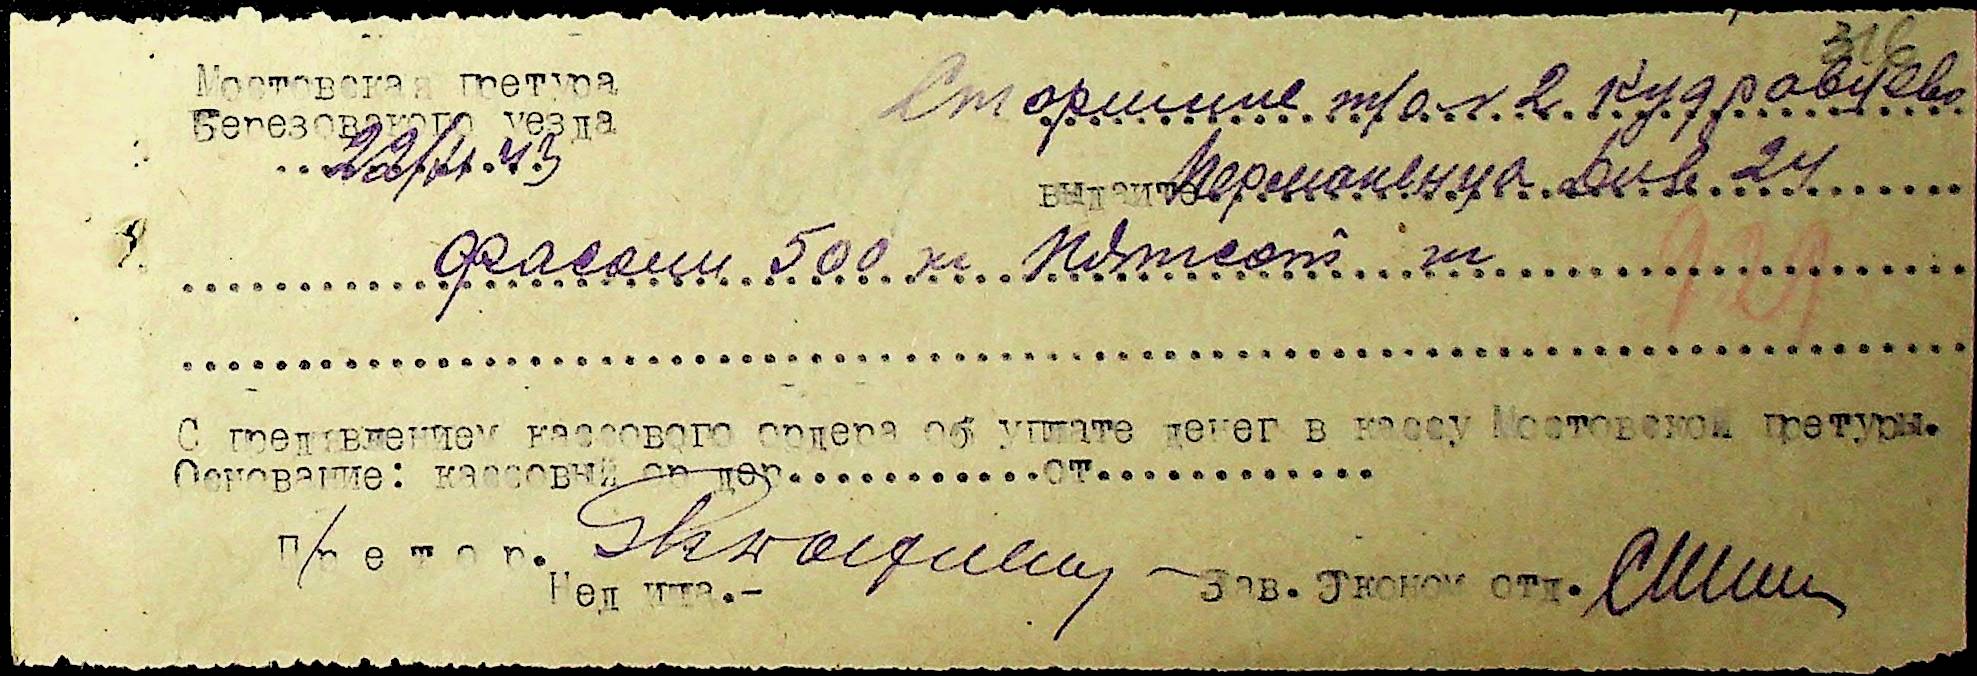 316
Мостовская претура
Березовского уезда
22/VI.43
Старшине т/о №2 Кудравцево
выдайте Див 24
фасоли 500 кг Пятсот кг
929
С предявлением кассового ордера об уплате денег в кассу Мостовской претуры.
Основание: кассовый ордер............от.............
Претор.
Недита.-
Зав. Эконом отд.